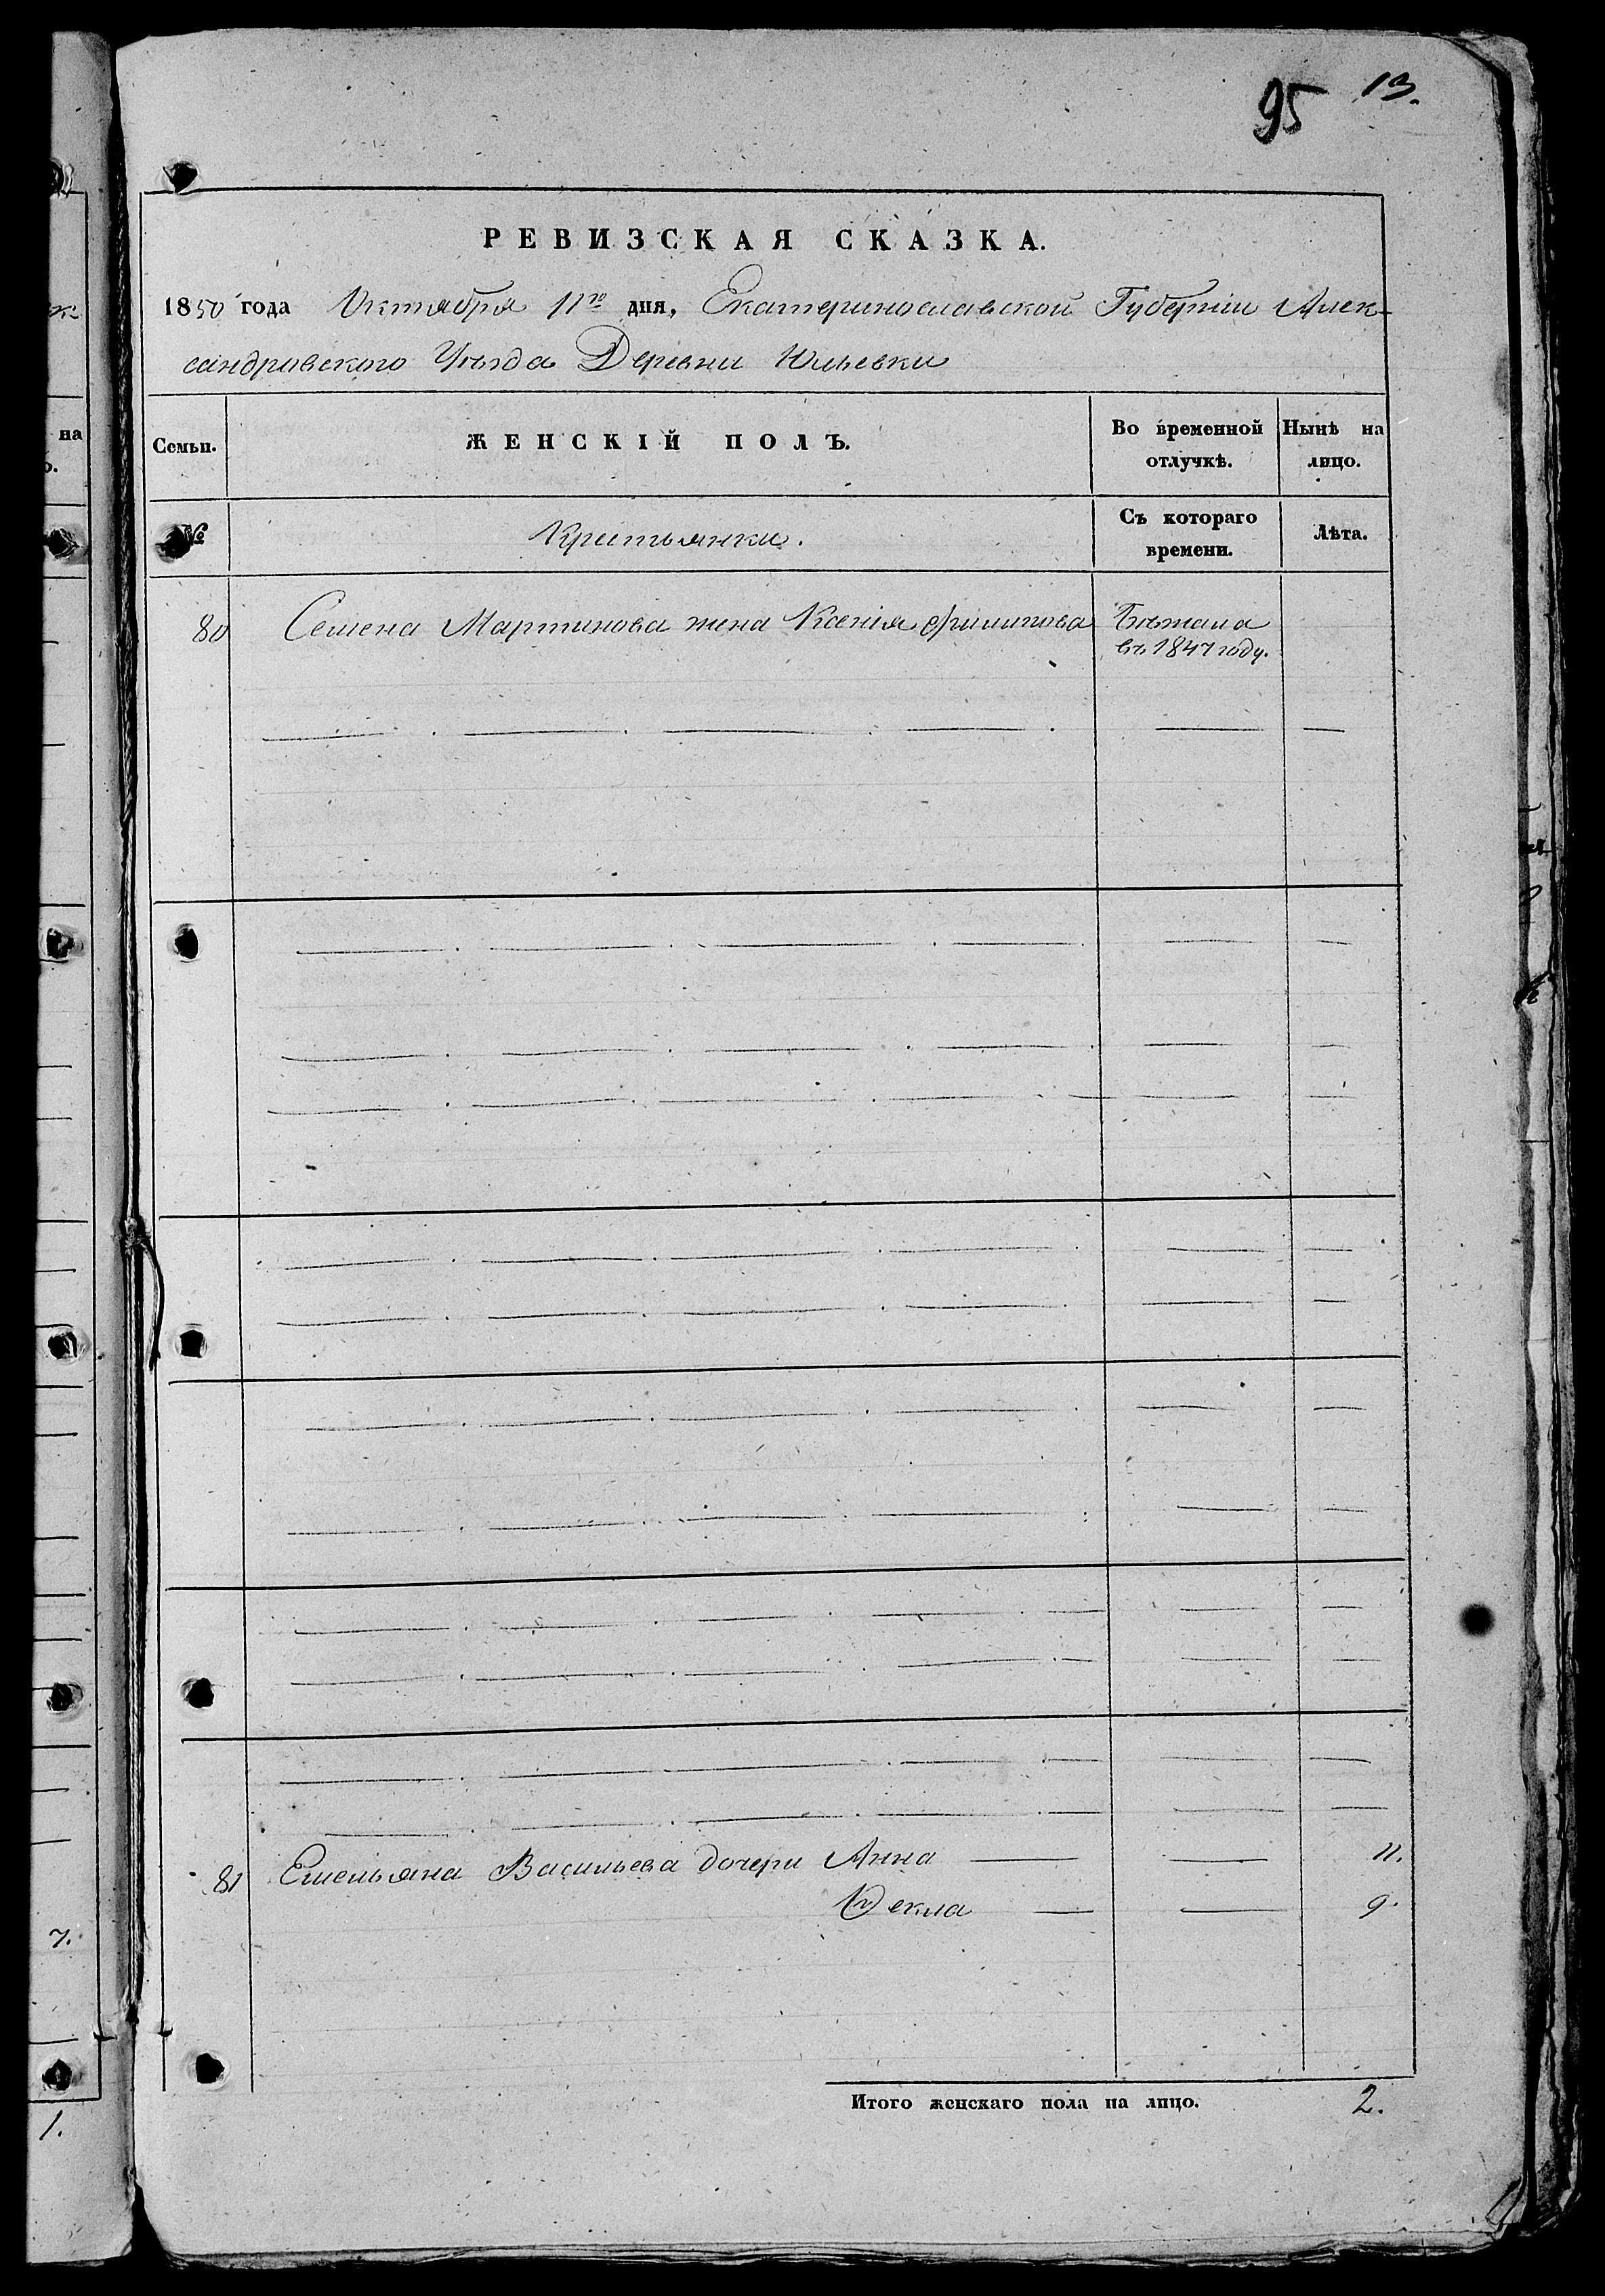 95 13.
РЕВИЗСКАЯ СКАЗКА.
1850 года Октября 11го дня, Екатеринославской Губерніи Алек-
сандровского Уѣзда Деревни Юльевки
Семьи. ЖЕНСКІЙ ПОЛЪ. Во временной отлучкѣ. Нынѣ на лицо.
№ Крестьянки. Съ котораго времени. Лѣта.
80 Семена Мартинова жена Ксенія Филипова Бѣжала
въ 1847 году.
81 Емельяна Васильева дочери Анна 11.
Фекла 9.
Итого женскаго пола на лицо. 2.
на
7.
1.